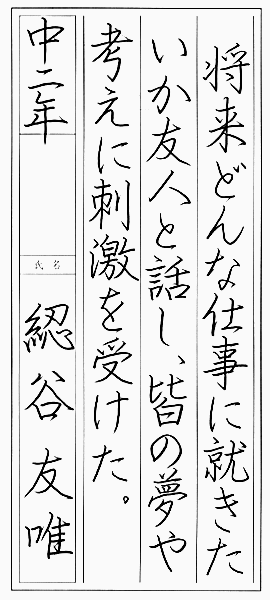 将来どんな仕事に就きた
いか友人と話し、皆の夢や
考えに刺激を受けた。
中二年
氏名
緫谷友唯